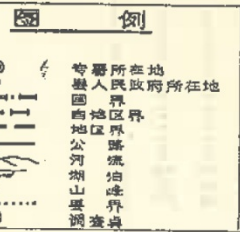 图 例
专署所在地
县人民政府所在地
国 界
自治区界
地区界
公 路
河 流
湖 泊
山 峰
县 界
调查点